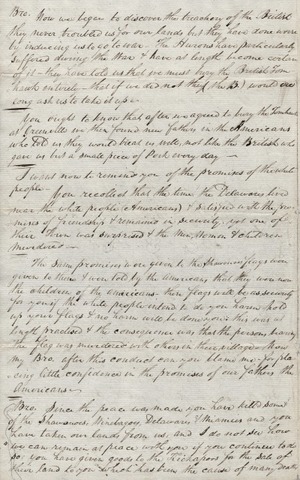 Bro. Now we began to discover the treachery of the British
they never troubled us for our lands but they have done worse
by inducing us to go to war. The Hurons have particularly
suffered during the War & have at length become certain
of it - they have told us that we must bury the British Tom
hawk entirely - that if we did not they (the B.) would ere
long ask us to take it up -
You ought to know that after we agreed to bury the Tomhawk
at Greenville we then found new fathers in the Americans
who told us they would treat us well, not like the British who
gave us but a small piece of Pork every day -
I want now to remind you of the promises of the white
people. You recollect that the time the Delawares lived
near the white people (Americans) & satisfied with the pro
mises of friendship & remained in security yet one of
their Towns was surprised & the Men, Women & children
Murdered -
The same promises were given to the Shawnese flags were
given to them & were told by the Americans that they were now
the children of the Americans. These flags will be as security
for you; if the white people intend to do you harm hold
up your flags & no harm will be done you. this was at
length practised & the consequence was that the person bearing
the flag was murdered with others in their village - Now
my Bro. after this conduct can you blame me for pla
cing little confidence in the promises of our fathers the
Americans -
Bro. Since the peace was made you have kill'd some
of the Shawanese, Winebagoes, Delawares & Miamies and you
have taken our lands from us, and I do not see how
we can remain at peace with you if you continue to do
so. you have given goods to the Kickapoos for the sale of
their lands to you which has been the cause of many deaths